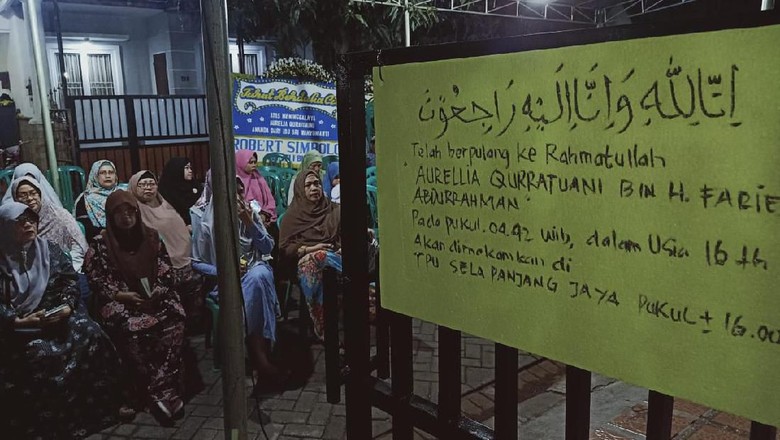 Turut Berduka Cita
ATAS MENINGGALNYA
AURELIA QURROTUAINI
ROBERT SIMBOLO
إِنَّا لِلّٰهِ وَإِنَّا إِلَيْهِ رَاجِعُوْنَ
Telah berpulang ke Rahmatullah
AURELLIA QURRATUANI BIN H. FARIE
ABDURRAHMAN
Pada pukul. 04.42 wib, dalam Usia 16 th
Akan dimakamkan di
TPU SELAPANJANG JAYA PUKUL ± 16.00